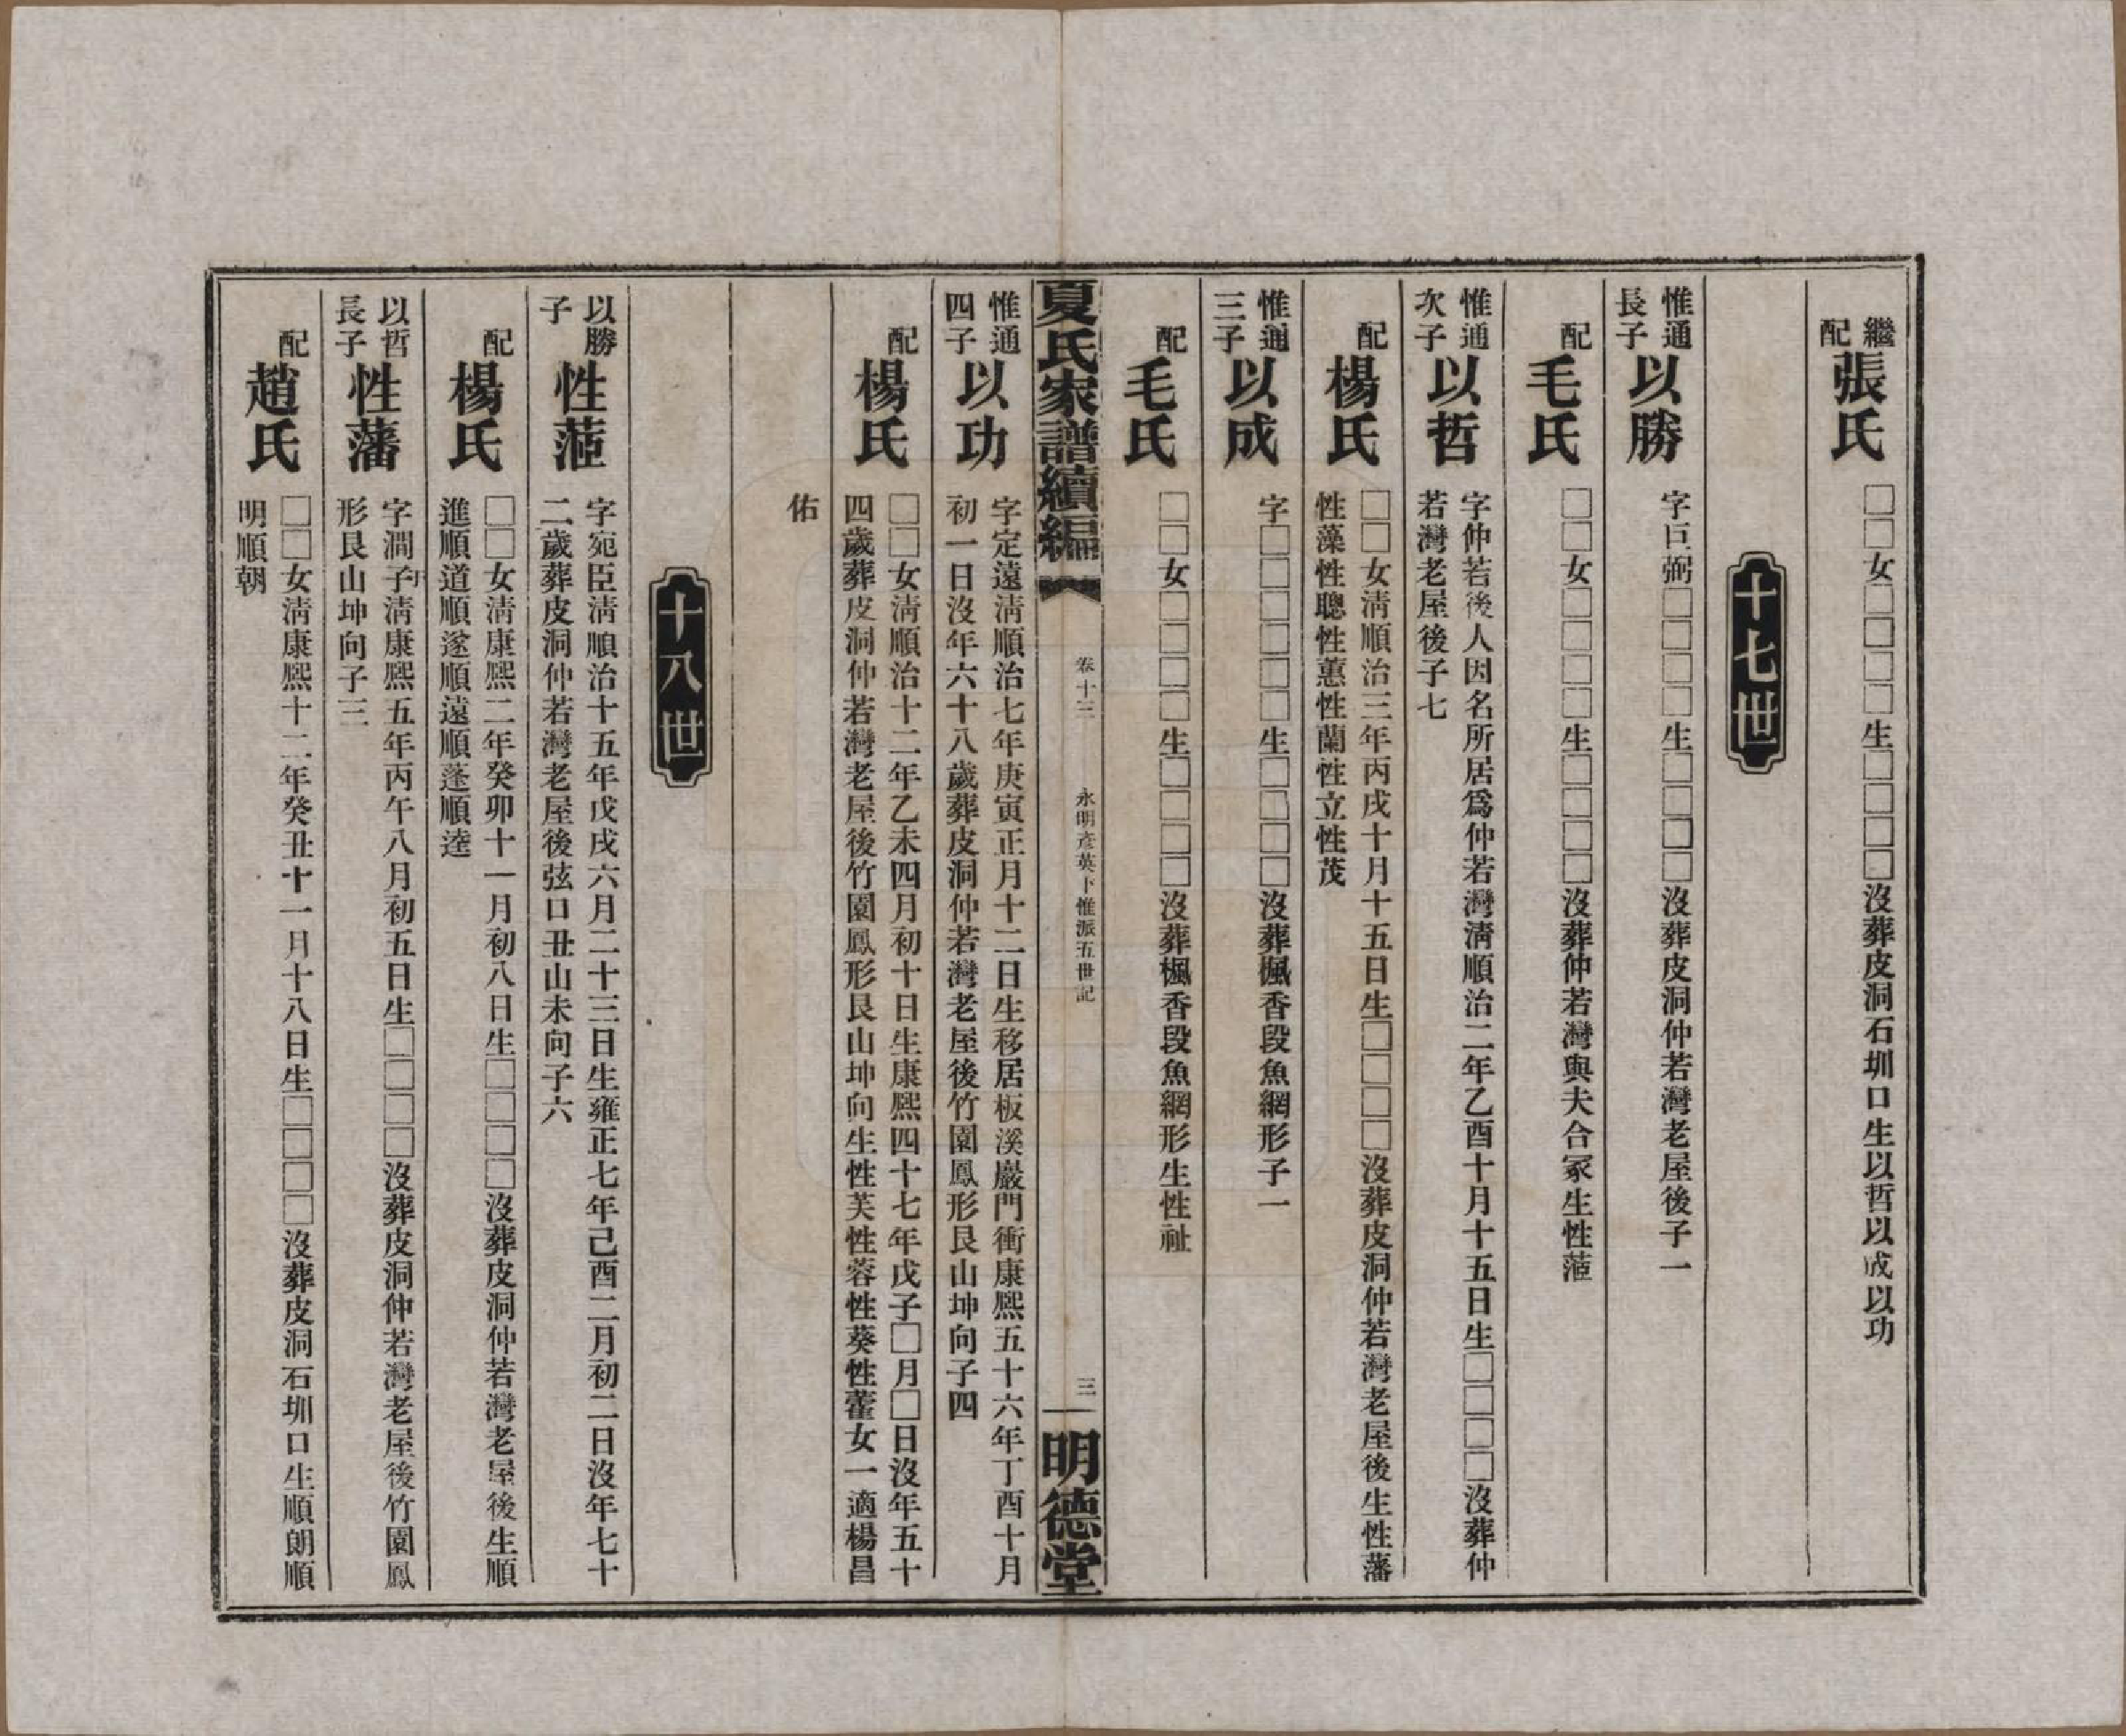 繼配 張氏 □□女□□□□生□□□□沒葬皮洞石圳口生以哲以成以功
十七世
惟通長子 以勝 字巨弼□□□□生□□□□沒葬皮洞仲若灣老屋後子一
配 毛氏 □□女□□□□生□□□□沒葬仲若灣與夫合冢生性菹
惟通次子 以哲 字仲若後人因名所居爲仲若灣清順治二年乙酉十月十五日生□□□□沒葬仲
若灣老屋後子七
配 楊氏 □□女清順治三年丙戌十月十五日生□□□□沒葬皮洞仲若灣老屋後生性藩
性藻性聰性蕙性蘭性立性茂
惟通三子 以成 字□□□□□□生□□□□沒葬楓香段魚網形子一
配 毛氏 □□女□□□□生□□□□沒葬楓香段魚網形生性祉
夏氏家譜續編 卷十三 永明彥英下惟派五世記 三 明德堂
惟通四子 以功 字定遠清順治七年庚寅正月十二日生移居板溪巖門衝康熙五十六年丁酉十月
初一日沒年六十八歲葬皮洞仲若灣老屋後竹園鳳形艮山坤向子四
配 楊氏 □□女清順治十二年乙未四月初十日生康熙四十七年戊子□月□日沒年五十
四歲葬皮洞仲若灣老屋後竹園鳳形艮山坤向生性芙性蓉性葵性藿女一適楊昌
佑
十八世
以勝子 性菹 字宛臣清順治十五年戊戌六月二十三日生雍正七年己酉二月初二日沒年七十
二歲葬皮洞仲若灣老屋後弦口丑山未向子六
配 楊氏 □□女清康熙二年癸卯十一月初八日生□□□□沒葬皮洞仲若灣老屋後生順
進順道順遂順遠順蓬順逵
以哲長子 性藩 字澗子清康熙五年丙午八月初五日生□□□□沒葬皮洞仲若灣老屋後竹園鳳
形艮山坤向子三
配 趙氏 □□女清康熙十二年癸丑十一月十八日生□□□□沒葬皮洞石圳口生順朗順
明順朝